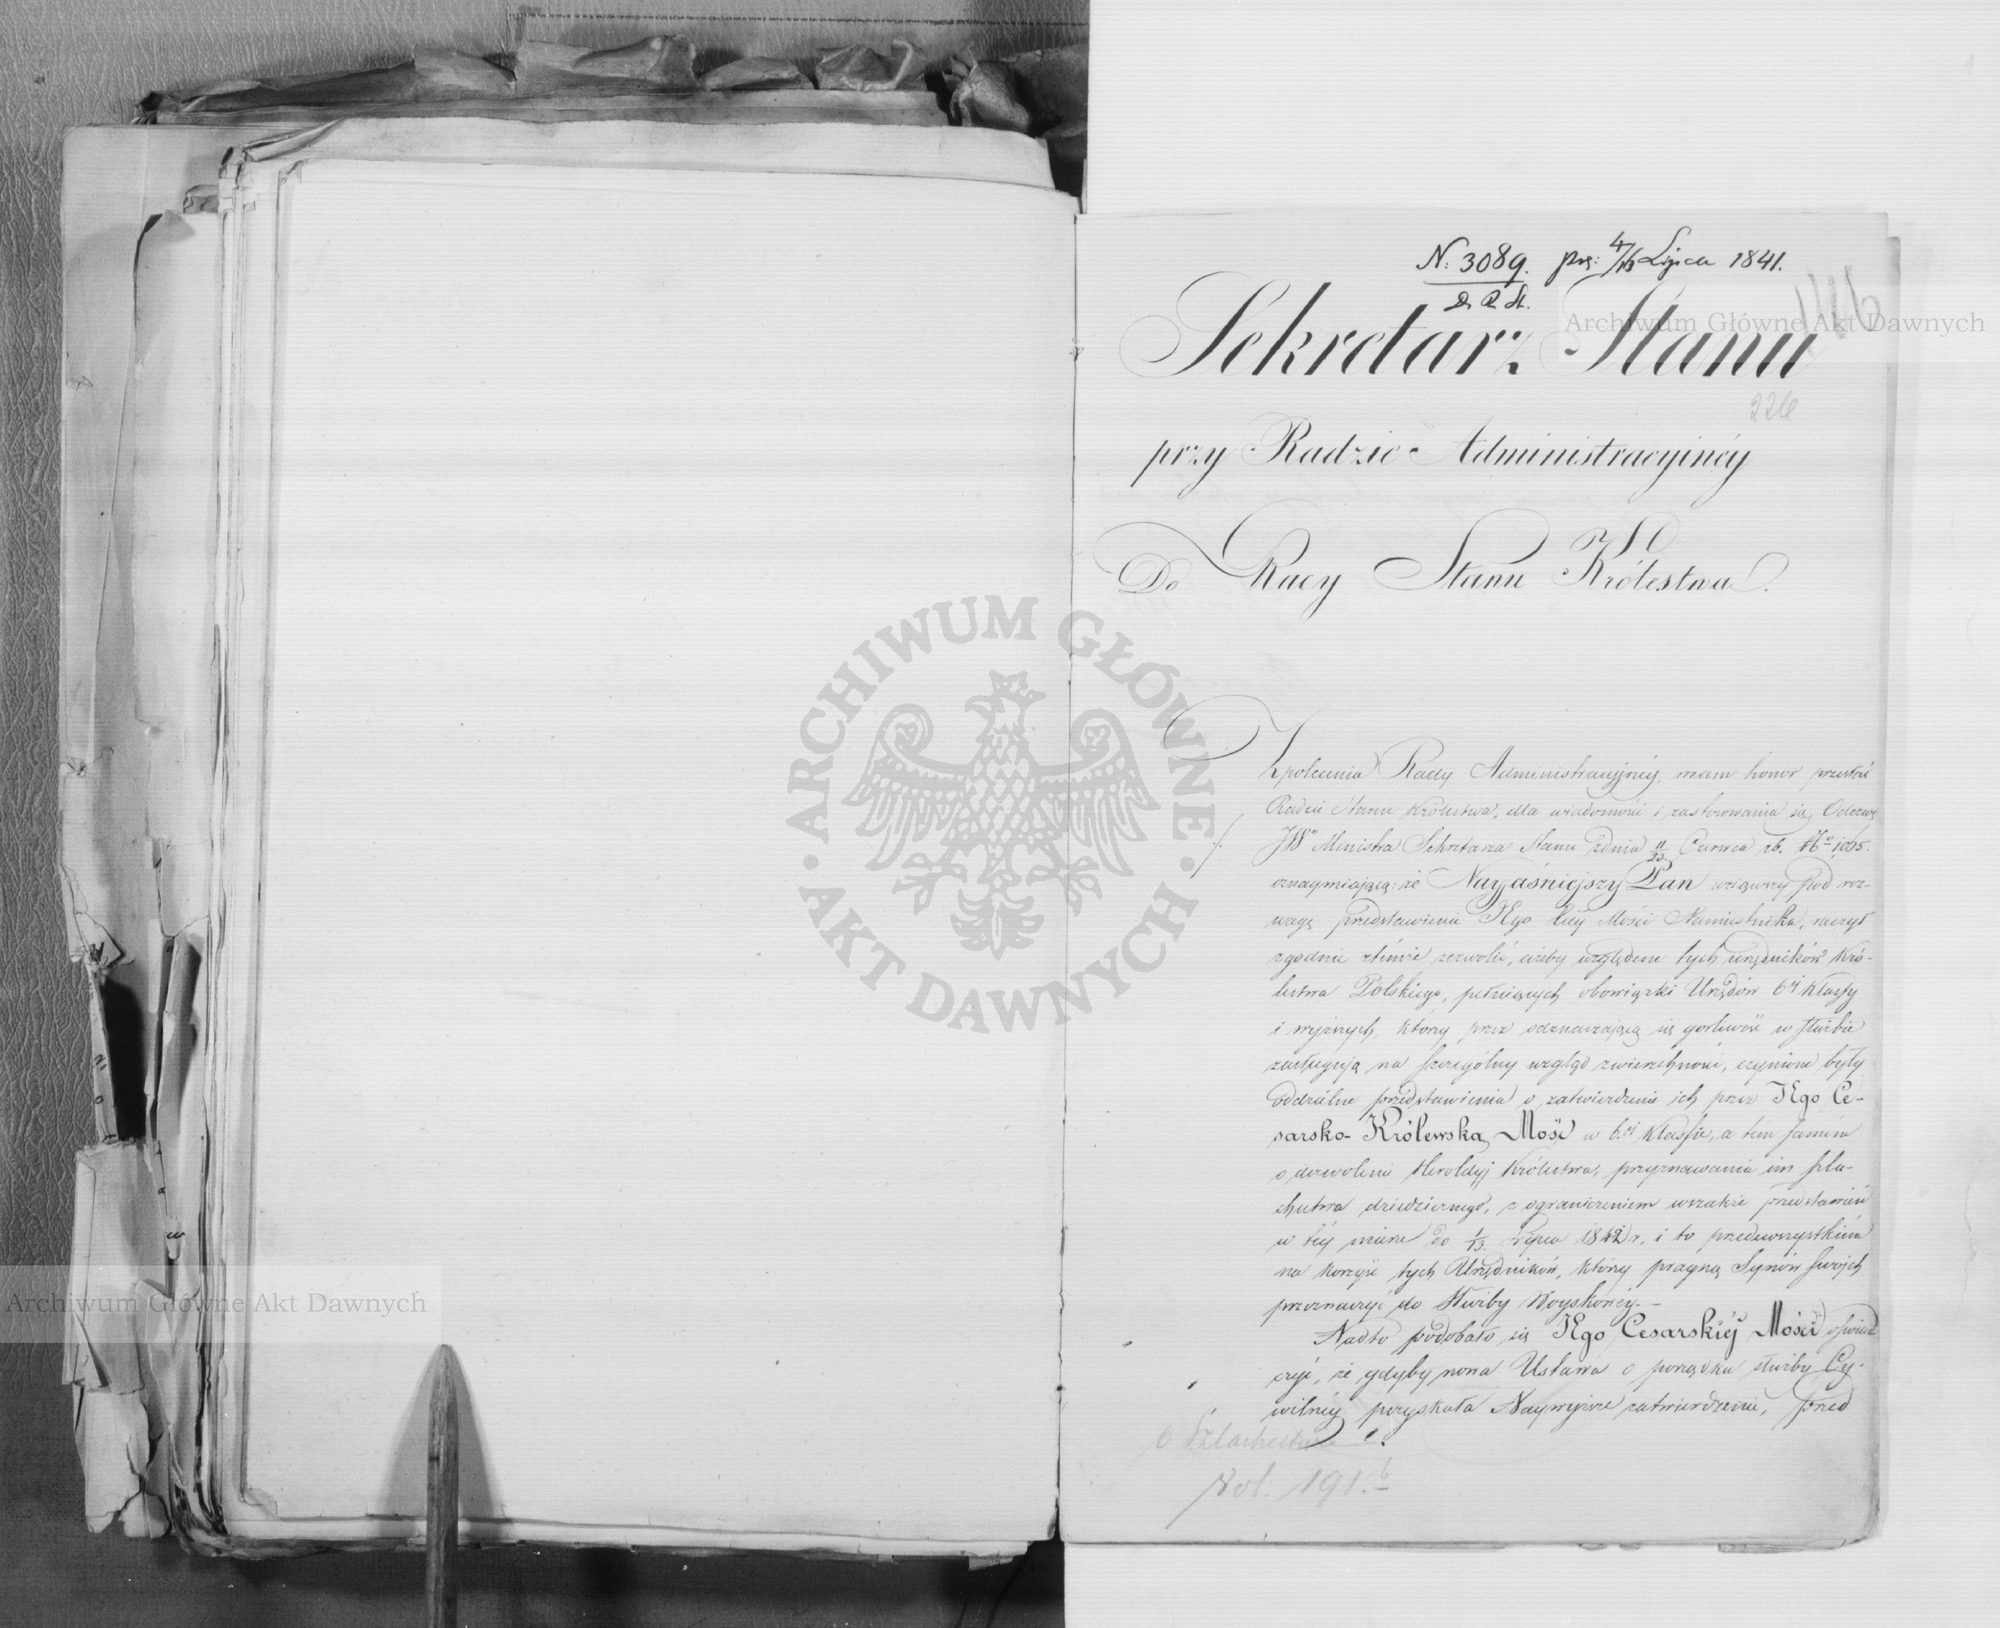 N. 3089. prz: 4/16 Lipca 1841.
D. R. St.
Sekretarz Stanu
226
przy Radzie Administracyinéy
Do Rady Stanu Królestwa.
Z polecenia Rady Administracyjnéy, mam honor przesłać
Radzie Stanu Królestwa, dla wiadomości i zastosowania się, Odezwę
JWo Ministra Sekretarza Stanu z dnia 11/23 Czerwca rb. No
oznaymiającą: że Nayjaśniejszy Pan wziąwszy pod roz-
wagę przedstawienie JEgo Xcéy Mości Namiestnika, raczył
zgodnie z témże zezwolić, ażeby względem tych urzędników Kró-
lestwa Polskiego, pełniących obowiązki Urzędów 6éj Klassy
i wyższych, którzy przez odznaczającą się gorliwość w służbie
zasługują na szczególny wzgląd zwierzchności, czynione były
oddzielne przedstawienia o zatwierdzenie ich przez JEgo Ce-
sarsko-Królewską Mość w 6éj Klassie, a tém samém
o dozwolenie Heroldyj Królestwa, przyznawania im szla-
chectwa dziedzicznego, z ograniczeniem wszakże przedstawień
w téy mierze do 1/13 Lipca 1842 r. i to przedewszystkiém
na korzyść tych Urzędników, którzy pragną Synów swojch
przeznaczyć do Służby Woyskowéy.—
Nadto podobało się JEgo Cesarskiéj Mości oświad
czyć, że gdyby nowa Ustawa o porządku służby Cy-
wilnéy pozyskała Naywyższe zatwierdzenie, przed
O Szlachectwie
Vol. 191.b
Archiwum Główne Akt Dawnych
Archiwum Główne Akt Dawnych
ARCHIWUM GŁÓWNE AKT DAWNYCH